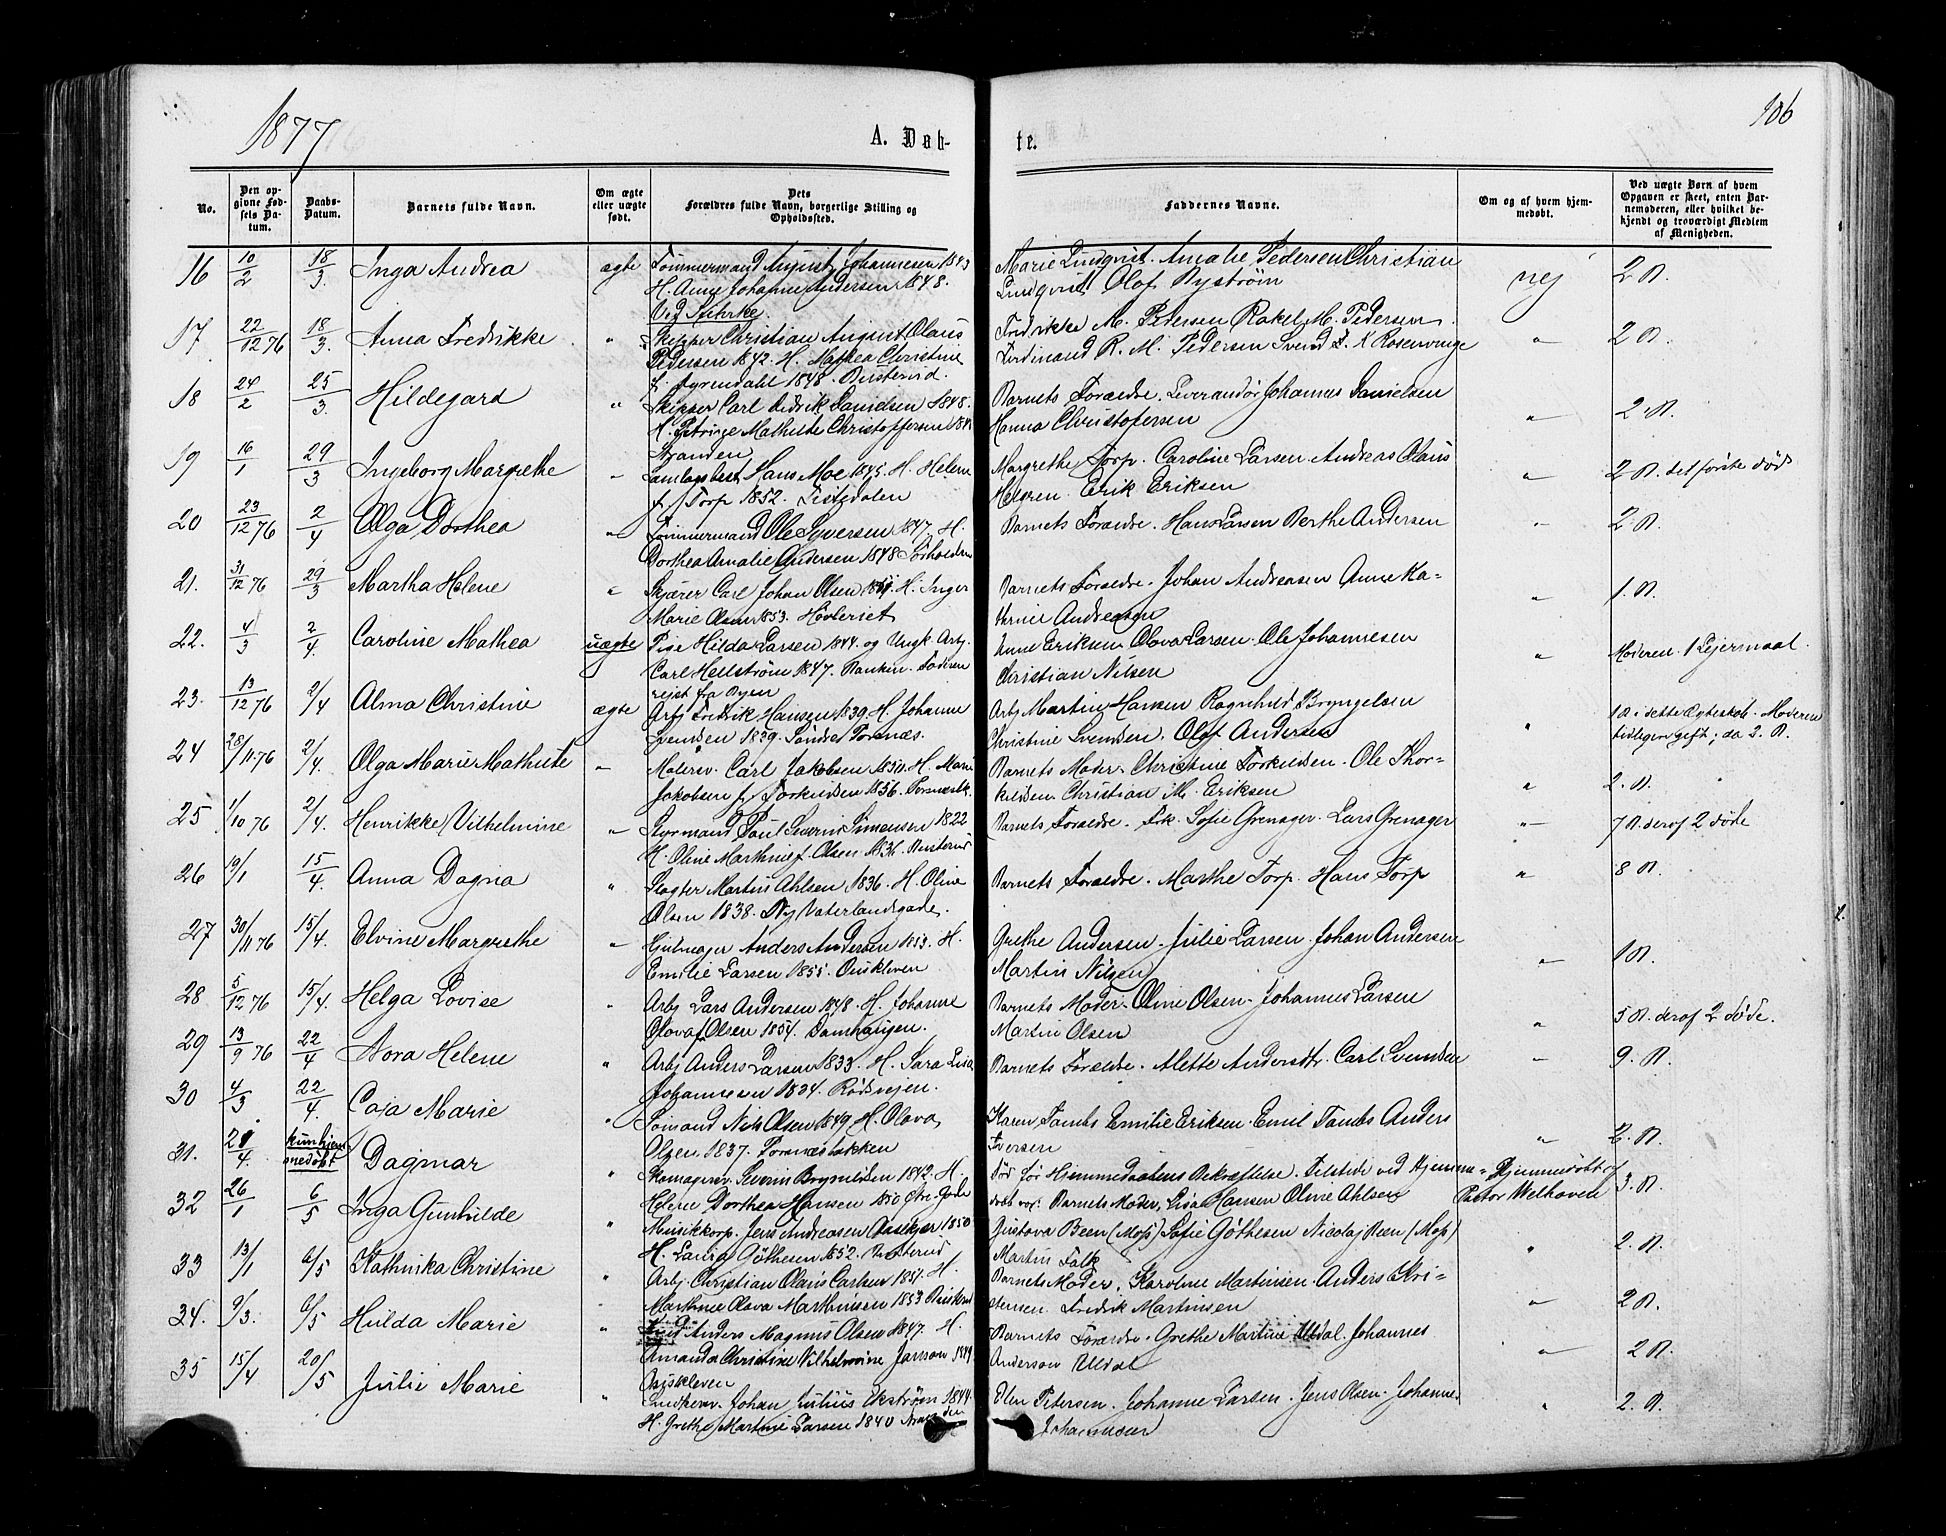 1877
A. Døb-
te.
106
No.
Den opgivne Fødsels Datum.
Daabs-Datum.
Barnets fulde Navn.
Om ægte eller uægte født.
Dets Forældres fulde Navn, borgerlige Stilling og Opholdssted.
Faddernes Navne.
Om og af hvem hjemmedøbt.
Ved uægte Børn af hvem Opgaven er skeet, enten Barnemoderen, eller hvilket bekjendt og troværdigt Medlem af Menigheden.
16 10/2 18/3 Inga Andrea ægte Tømmermand August Johannesen 1843 Marie Lundqvist. Amalie Pedersen Christian nej 2 B.
H. Anne Johanne Andersen 1848. Lundqvist Olof Nyström
Ved
17 22/12 76 18/3 Anna Fredrikke " Skipper Christian August Olaus Fredrikke M. Pedersen Rakel M. Pedersen " 2 B.
Pedersen 1842. H. Mathea Christine Ferdinand R. M. Pedersen Svend F. K. Rosenvinge
f. Gyrendahl 1848. Busterud.
18 24/2 25/3 Hildegard " Skipper Carl Fredrik Danielsen 1848. Barnets Forældre. Leverandør Johannes Danielsen " 2. B.
H. Petrine Mathilde Christoffersen Hanna Christofersen
Stranden
19 16/1 29/3 Ingeborg Margrethe " Samlagsbest. Hans Moe 1845 H. Helene Margrethe Torp. Caroline Larsen Andreas Olaus " 2 B. det første død
f. Torp 1852. Tistedalen Helgren. Erik Eriksen
20 23/12 76 2/4 Olga Dorthea " Tømmermand Ole Syversen 1847. H. Barnets Forældre. Hans Larsen Berthe Andersen " 2. B.
Dorthea Amalie Andersen 1848
21. 31/12 76 29/3 Martha Helene " Skjærer Carl Johan Olsen H. Inger Barnets Forældre. Johan Andreasen Anne Ka= " 1. B.
Marie Olsen 1853. thrine Andreasen
22. 4/3 2/4. Caroline Mathea uægte Pige Hilda Larsen 1844. og Ungk. Arb. Anne Eriksen Olava Larsen. Ole Johannesen " Moderen. 1 Lejermaal.
Carl Hellström 1847. Banken. Faderen Christian Nilsen
rejst fra Byen
23. 13/12 76 2/4 Alma Christine ægte Arb. Fredrik Hansen 1839. H. Johanne Arb. Martin Hansen Ragnhild Bryngelsen " 1 B. i dette Ægteskab. Moderen
Svendsen 1839. Søndre Torsnæs. Christine Svendsen. Olaf Andersen tidligere gift; da 2. B.
24 28/11.76 2/4. Olga Marie Mathilde " Malersv. Carl Jakobsen 1850. H. Marie Barnets Moder. Christine Torkildsen. Ole Thor= " 2. B.
Jakobsen f. Torkildsen 1856. kildsen Christian M. Eriksen
25 1/10 76 2/4. Henrikke Vilhelmine " Styrmand Paul Severin Simensen 1822 Barnets Forældre. Frk. Sofie Grenager. Lars Grenager " 7 B. deraf 2 døde
H. Oline Marthine f. Olsen 1836. Busterud
26 19/1 15/4. Anna Dagna " Slagter Martin Ahlsen 1836. H. Oline Barnets Forældre. Marthe Torp. Hans Torp " 8 B.
Olsen 1838. Ny Vaterlandsgade.
27 30/11 76 15/4. Elvine Margrethe " Gjulmager Anders Andersen 1853. H. Grethe Andersen. Julie Larsen. Johan Andersen " 1 B.
Emilie Larsen 1855. Oskleven Martin Nilsen
28 5/12 76 15/4. Helga Lovise " Arb. Lars Andersen 1848. H. Johanne Barnets Moder. Oline Olsen. Johannes Larsen " 5 B. deraf 2 døde.
Olava Olsen 1854. Damhaugen. Martin Olsen
29 13/9 76 22/4 Nora Helene " Arb. Anders Larsen 1833. H. Sara Lisa Barnets Forældre. Alette Andersdtr. Carl Svendsen " 9. B.
Johannesen 1834. Rødsvejen.
30 4/3 22/4. Caja Marie " Sømand Nils Olsen 1849 H. Olava Karen Tambs Emilie Eriksen. Emil Tambs Anders " 2. B.
Olsen 1837. Torsnæsbakken Iversen
31. 21/4. kun hjemmedøbt Dagmar " Skomagersv. Severin Brynildsen 1842. H. Død før Hjemmedaabens Bekræftelse. Tilstede ved Hjemme= Hjemmedøbt af 3. B.
Helene Dorthea Hansen 1850 daab var: Barnets Moder, Lisa Hansen Oline Ahlsen Pastor Welhaven
32 26/1 6/5 Inga Gunhilde " Musikkorp. Jens Andreasen Aaskjær 1850 Gustava Been (Moss) Sofie Gøthesen Nicolaj Been (Moss) " 2. B.
H. Laura Gøthesen 1852. Busterud Martin Falk
33 13/1 6/5 Kathinka Christine " Arb. Christian Olaus Carlsen 1851. H. Barnets Moder. Karoline Martinsen. Anders Kri= " 2 B.
Marthine Olava Marthinsen 1853 Busterud stensen. Fredrik Martinsen
34. 9/3. 6/5 Hulda Marie " Anders Magnus Olsen 1847. H. Barnets Forældre. Grethe Martine Uldal. Johannes " 2 B.
Amanda Christine Vilhelmine Janson 1849 Anderson Uldal
Oskleven
35 15/4 20/5 Julie Marie " Snedkersv. Johan Julius Ekström 1844 Elen Petersen. Johanne Larsen. Jens Olsen. Johannes " 2. B.
H. Grethe Martine Larsen 1840 Johannesen